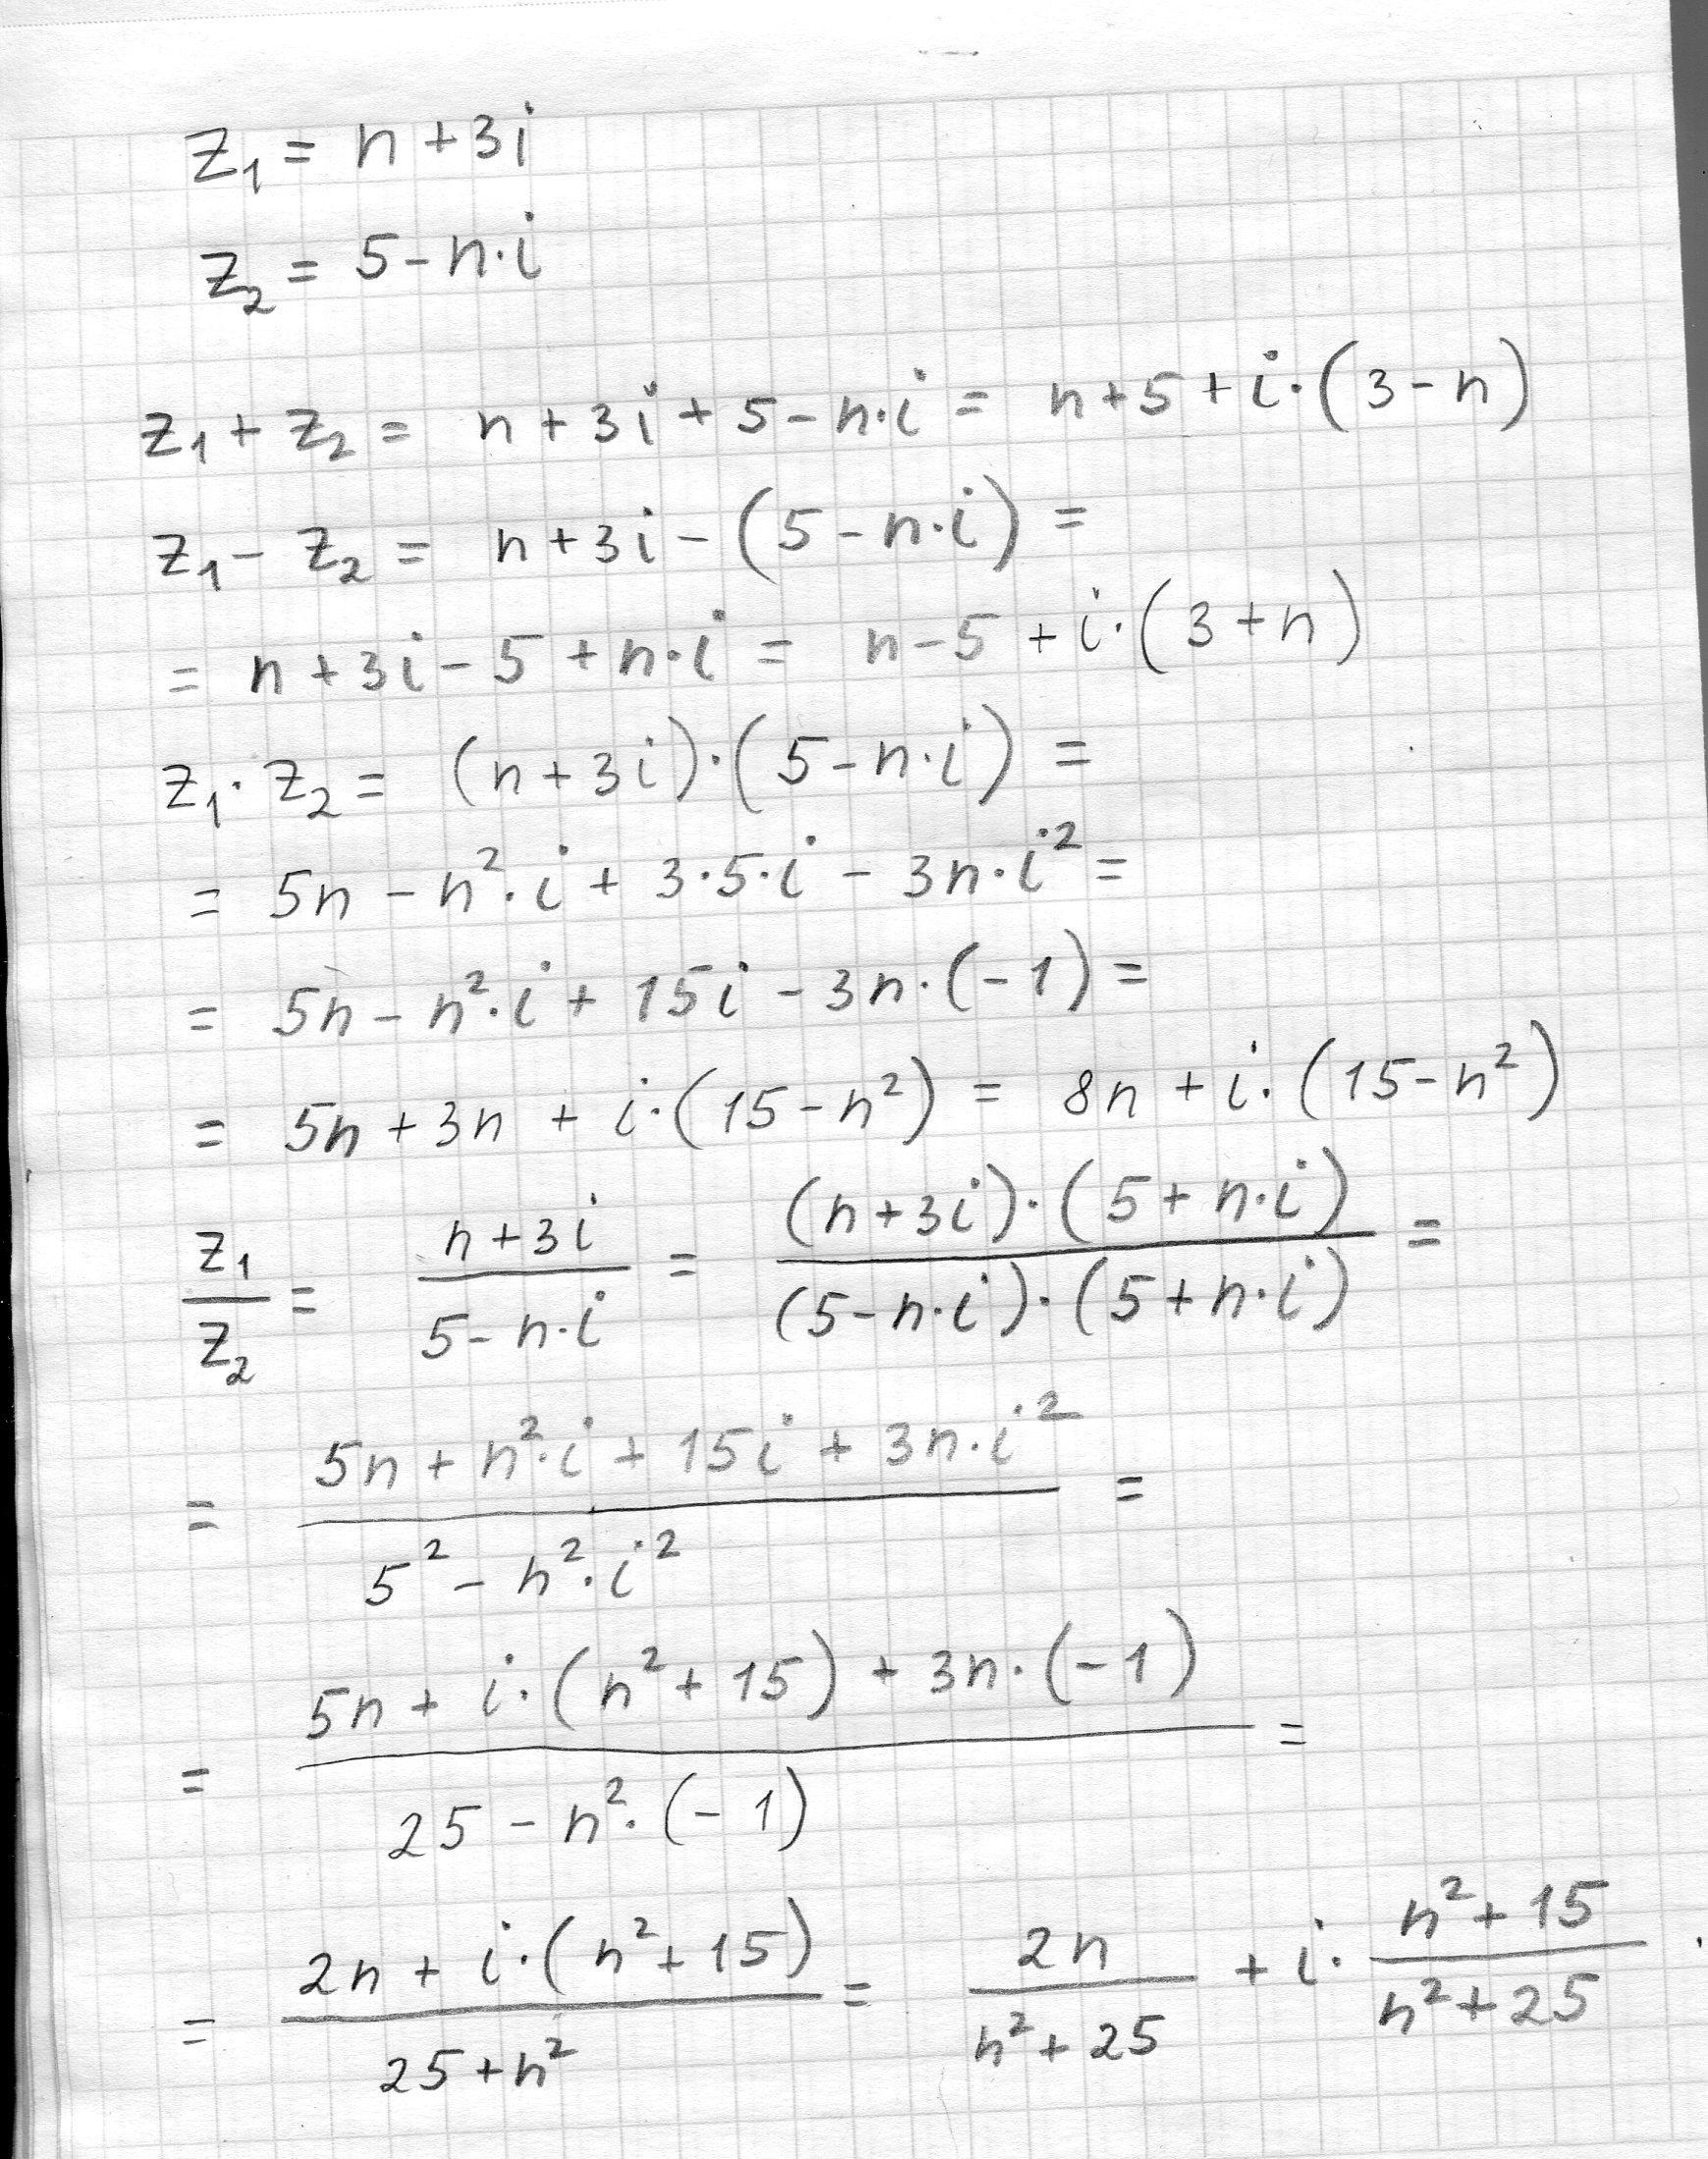 z₁ = n + 3i
z₂ = 5 - n·i
z₁ + z₂ = n + 3i + 5 - n·i = n + 5 + i·(3 - n)
z₁ - z₂ = n + 3i - (5 - n·i) =
= n + 3i - 5 + n·i = n - 5 + i·(3 + n)
z₁·z₂ = (n + 3i)·(5 - n·i) =
= 5n - n²·i + 3·5·i - 3n·i² =
= 5n - n²·i + 15i - 3n·(-1) =
= 5n + 3n + i·(15 - n²) = 8n + i·(15 - n²)
z₁/z₂ = (n + 3i)/(5 - n·i) = ((n + 3i)·(5 + n·i))/((5 - n·i)·(5 + n·i)) =
= (5n + n²·i + 15i + 3n·i²)/(5² - n²·i²) =
= (5n + i·(n² + 15) + 3n·(-1))/(25 - n²·(-1)) =
= (2n + i·(n² + 15))/(25 + n²) = 2n/(n² + 25) + i·(n² + 15)/(n² + 25).